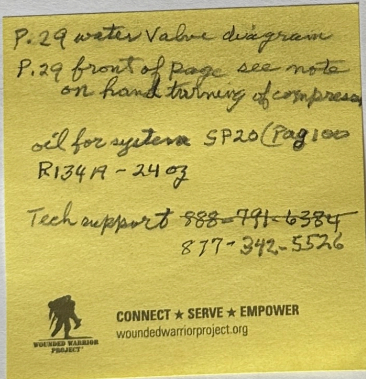 P.29 water Valve diagram
P.29 front of page see note
on hand turning of compresso
oil for system SP20 (Pag100
R134A - 24 oz
Tech support 888-791-6384
877-342-5526
CONNECT ★ SERVE ★ EMPOWER
woundedwarriorproject.org
WOUNDED WARRIOR
PROJECT